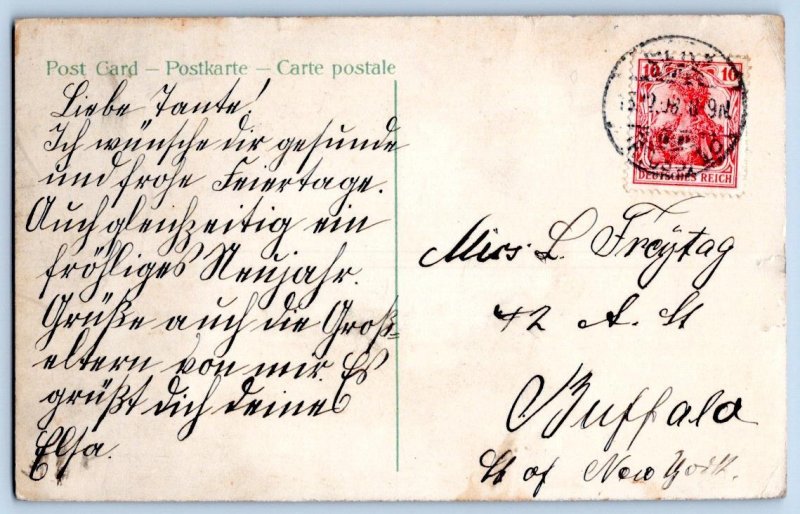 Post Card – Postkarte – Carte postale
Liebe Tante!
Ich wünsche dir gesunde
und frohe Feiertage.
Auch gleichzeitig ein
fröhliges Neujahr.
Grüße auch die Groß=
eltern von mir. Es
grüßt dich deine
Elsa.
10 10
DEUTSCHES REICH
Mirs. L. Freÿtag
42 A. St
Buffalo
St of New York.